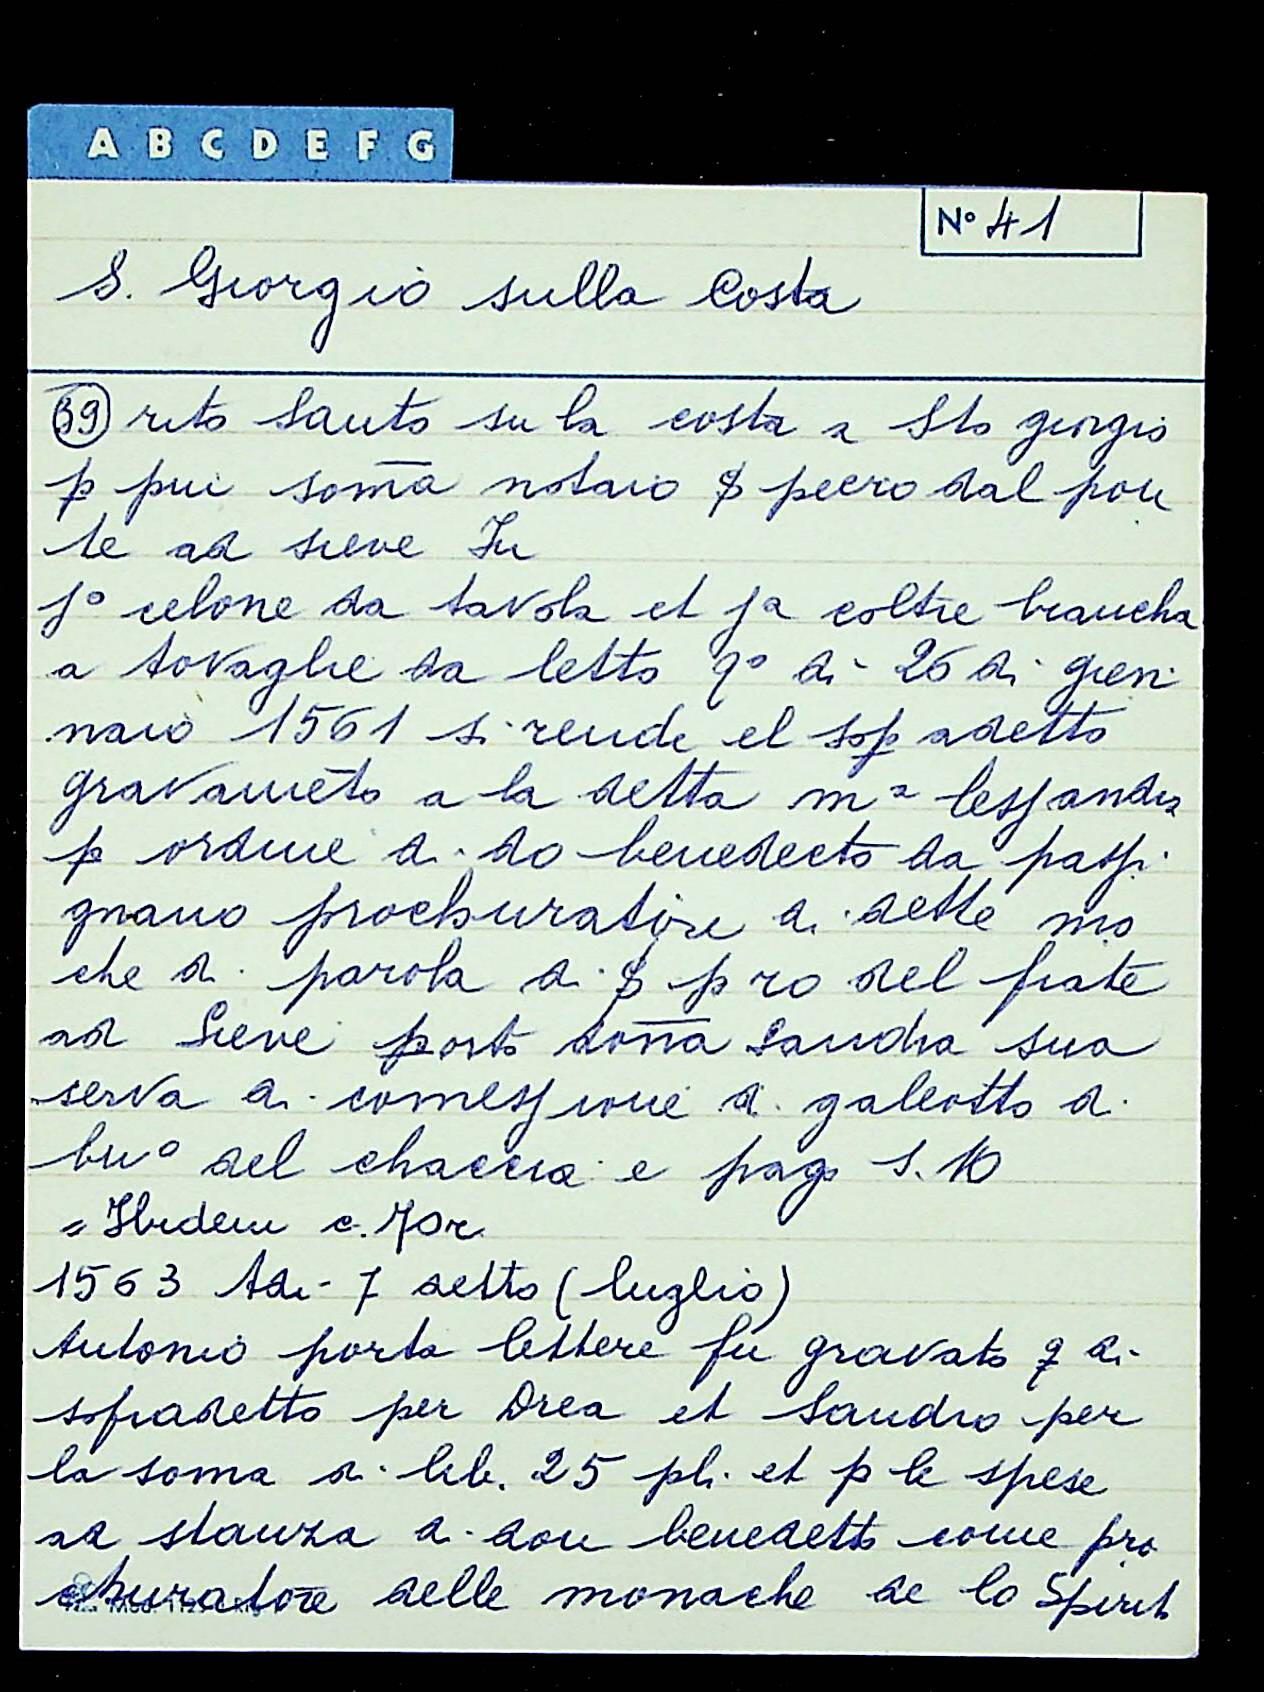 A B C D E F G
Nº 41
S. Giorgio sulla Costa
39 rito Santo su la costa a Sto giorgio
p piu som̅a notaio ꝸ piero dal pon
te ad sieve In
jº celone da tavola et jª coltre biancha
a tovaglie da letto qº di 26 di gien
naio 1561 si rende el sop adetto
gravamēto a la detta mª lessandra
p ordine di do benedecto da passi
gnano prochuratore di dette mo
che di parola di p ro del frate
ad Sieve porto don̅a Sandra sua
serva di comessione di galeotto di
buº del chaccia e pago s. 10
= Ibidem c. 70r
1563 Adi - 7 detto (luglio)
Antonio porta lettere fu gravato q di
sopradetto per Drea et Sandro per
la soma di lib. 25 pli. et p le spese
ad stanza di don benedetto come pro
churatore delle monache de lo Spirit